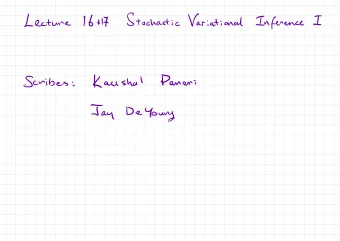 Lecture 16+17 Stochastic Variational Inference I
Scribes: Kaushal Paneri
Jay DeYoung